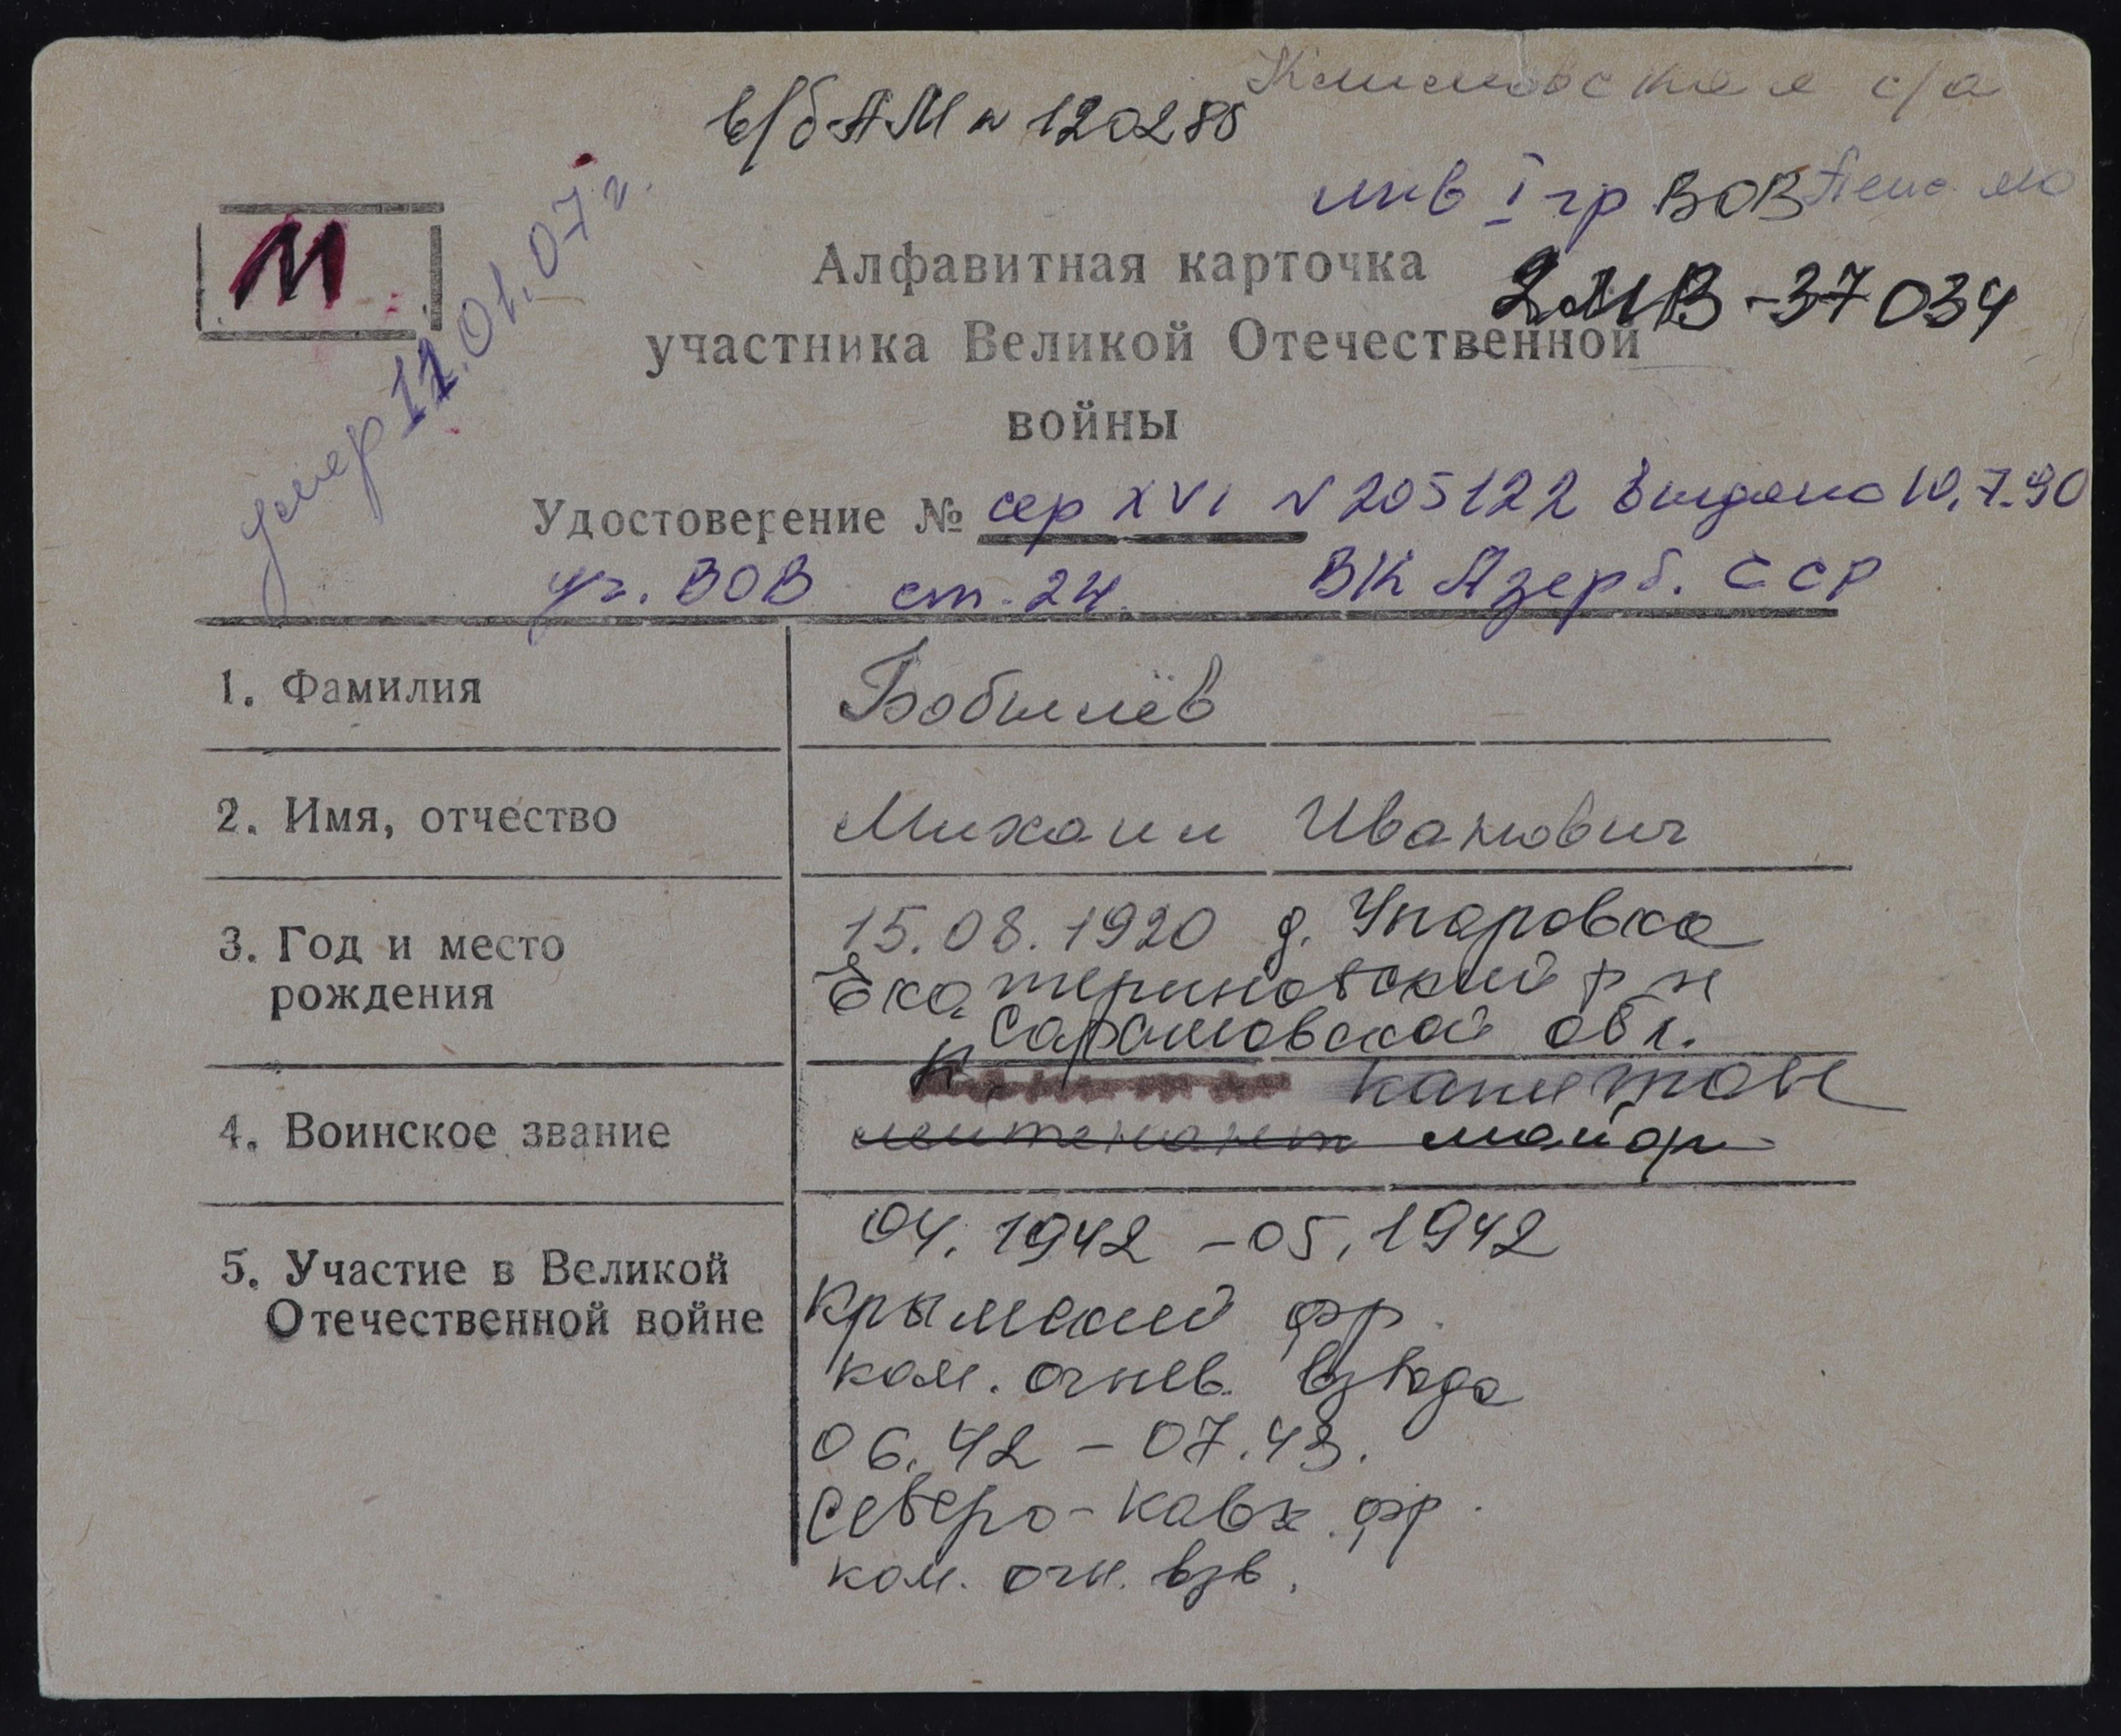 Климовская с/а
в/б АМ № 120285
инв I гр ВОВ
М
2МВ-37034
умер 11.01.07г.
Алфавитная карточка
участника Великой Отечественной
войны
Удостоверение № сер XVI № 205122 выдано 10.7.90
уч. ВОВ ст. 24. ВК Азерб. ССР
1. Фамилия Бобылёв
2. Имя, отчество Михаил Иванович
3. Год и место 15.08.1920 д. Упоровка
рождения Екатериновский р н
Саратовской обл.
капитан
4. Воинское звание лейтенант майор
04.1942 - 05.1942
5. Участие в Великой
Отечественной войне Крымский фр.
ком. огнев. взвода
06.42 - 07.43.
Северо-Кавк. фр.
ком. огн. взв.